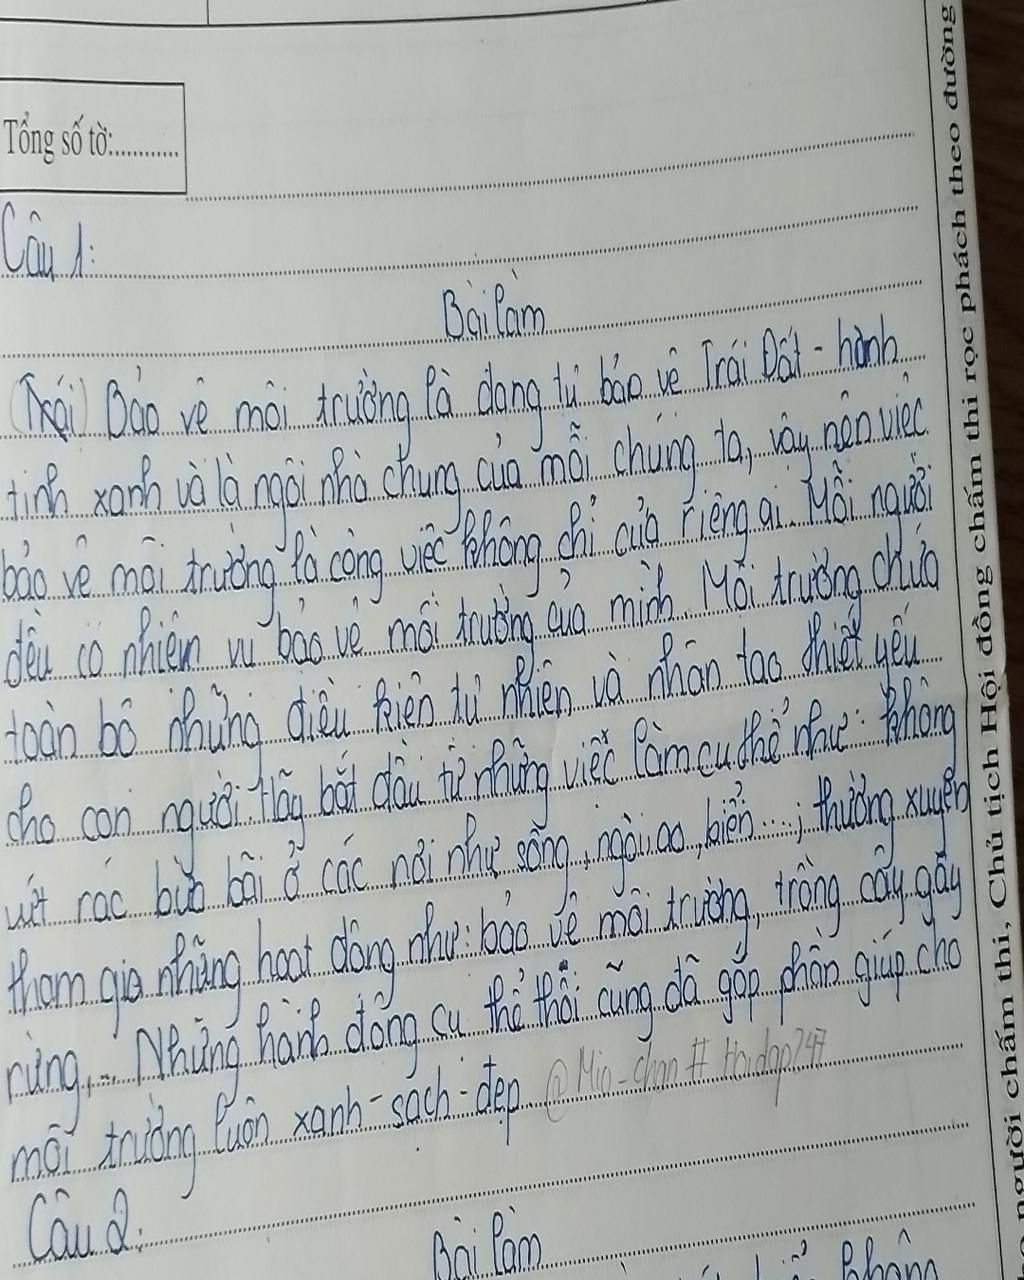 Tổng số tờ:...........
Câu 1:
Bài làm
(Trái) Bảo vệ môi trường là đang tự bảo vệ Trái Đất - hành
tinh xanh và là ngôi nhà chung của mỗi chúng ta, vậy nên việc
bảo vệ môi trường là công việc không chỉ của riêng ai. Mỗi người
đều có nhiệm vụ bảo vệ môi trường của mình. Môi trường chứa
toàn bộ những điều kiện tự nhiên và nhân tạo thiết yếu
cho con người. Hãy bắt đầu từ những việc làm cụ thể như: không
vứt rác bừa bãi ở các nơi như sông, ngòi, ao, biển...; thường xuyên
tham gia những hoạt động như: bảo vệ môi trường, trồng cây gây
rừng,... Những hành động cụ thể thôi cũng đã góp phần giúp cho
môi trường luôn xanh - sạch - đẹp. @Min-chan # Hoidap247
Câu 2:
Bài làm
không
người chấm thi, Chủ tịch Hội đồng chấm thi rọc phách theo đường